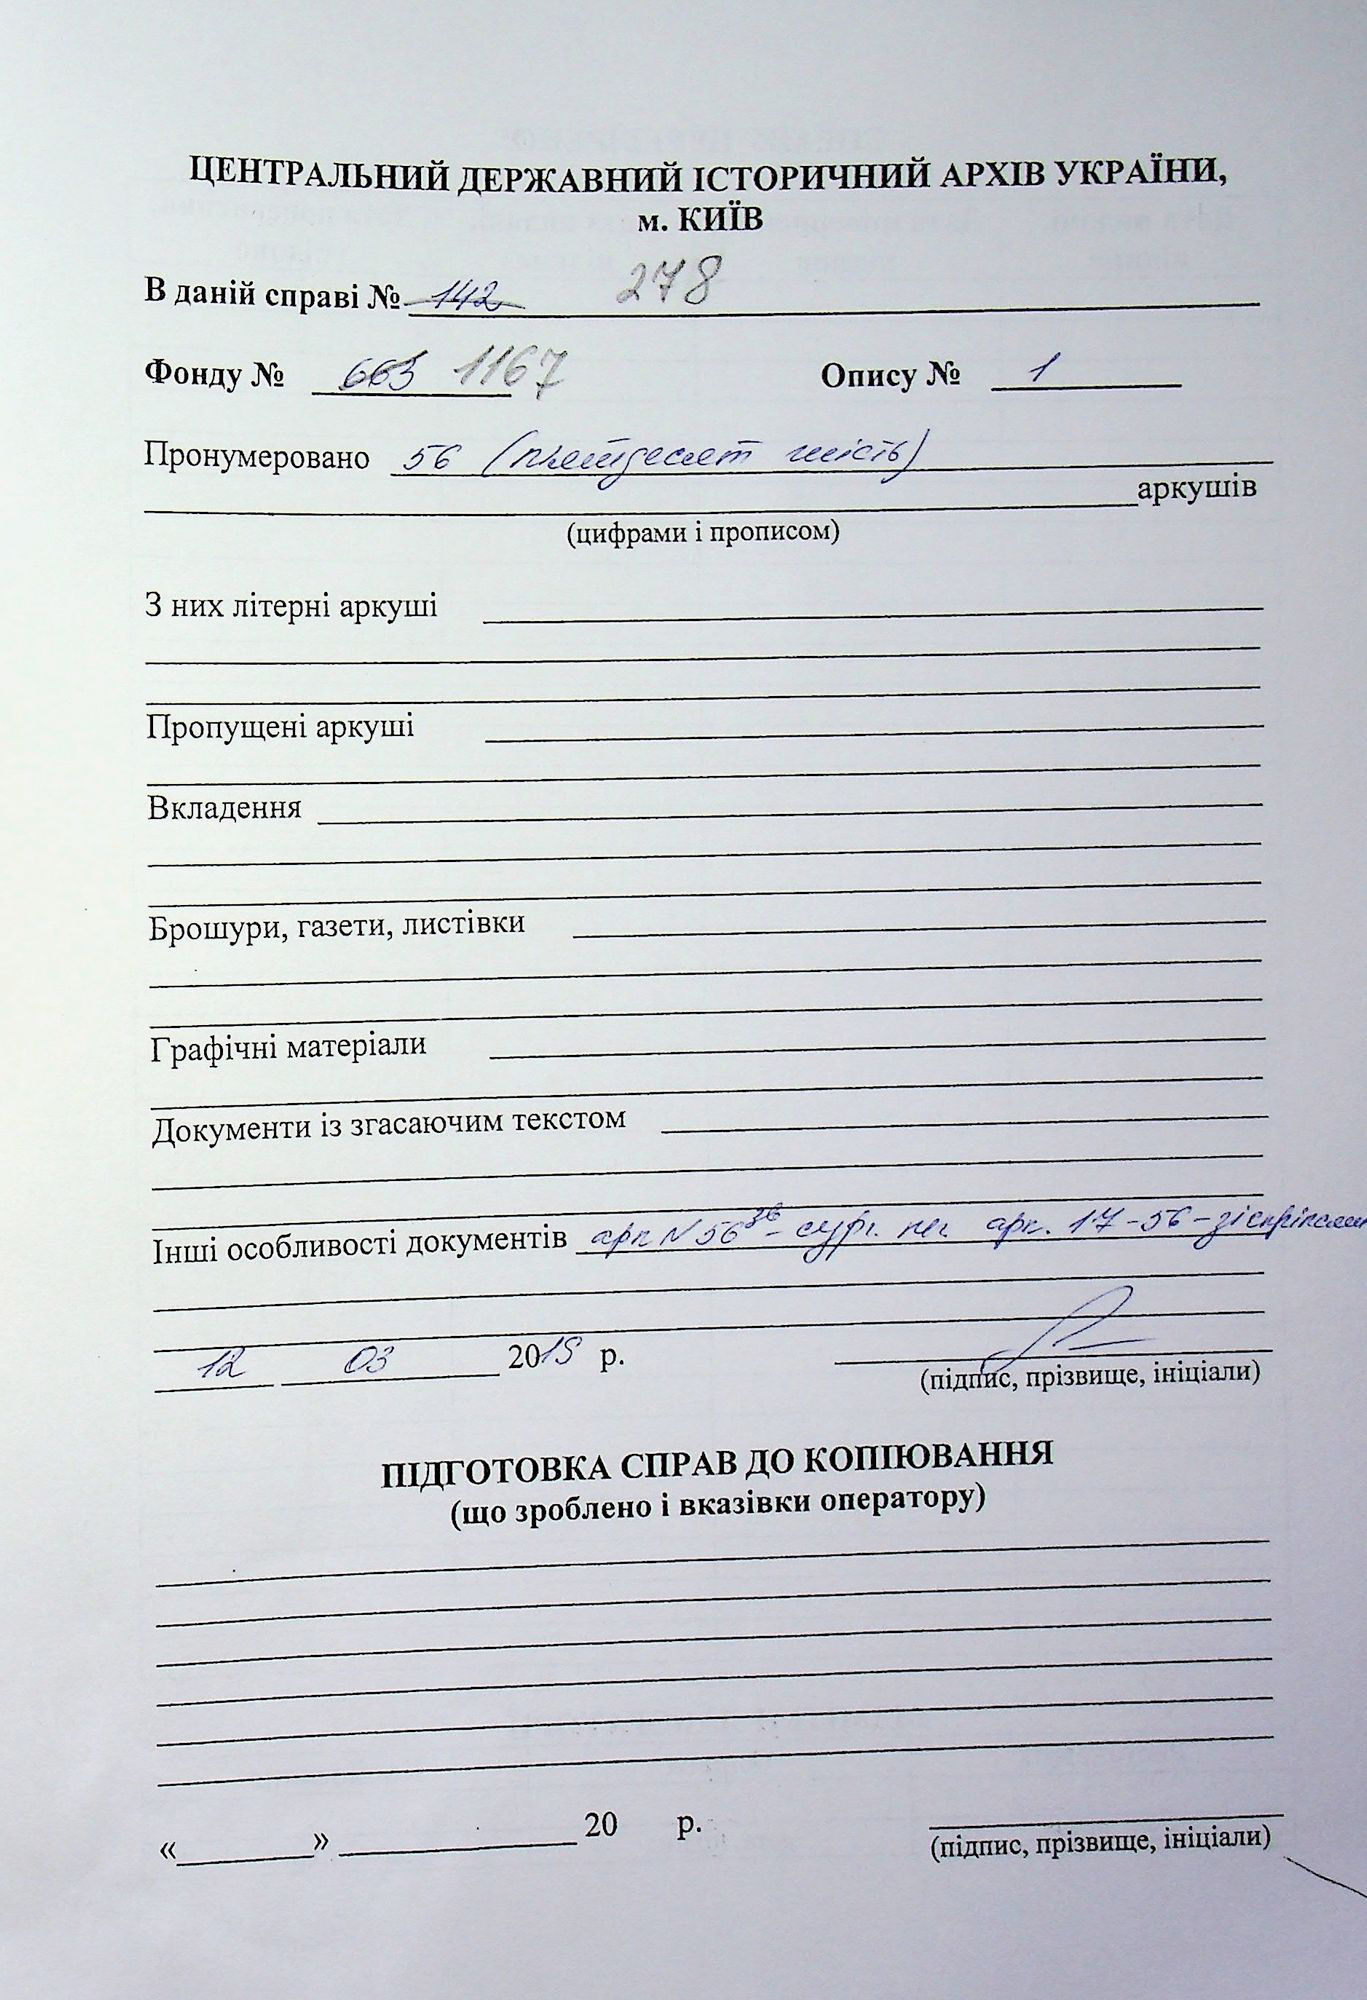 ЦЕНТРАЛЬНИЙ ДЕРЖАВНИЙ ІСТОРИЧНИЙ АРХІВ УКРАЇНИ,
м. КИЇВ
В даній справі № 142 278
Фонду № 663 1167 Опису № 1
Пронумеровано 56 (п'ятдесят шість)
аркушів
(цифрами і прописом)
З них літерні аркуші
Пропущені аркуші
Вкладення
Брошури, газети, листівки
Графічні матеріали
Документи із згасаючим текстом
Інші особливості документів арк N 56 зв - сург. печ. арк. 17-56 -
12 03 2015 р.
(підпис, прізвище, ініціали)
ПІДГОТОВКА СПРАВ ДО КОПІЮВАННЯ
(що зроблено і вказівки оператору)
« » 20 р.
(підпис, прізвище, ініціали)